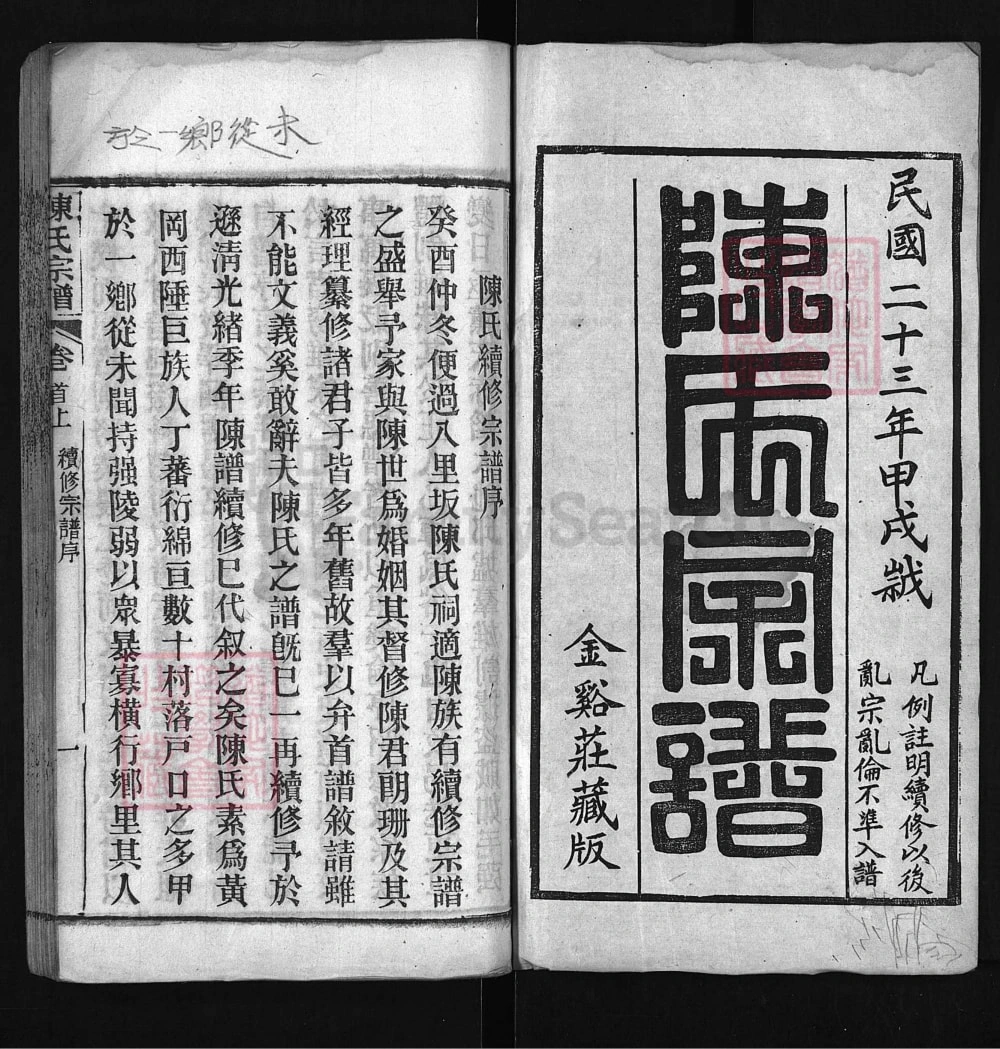 民國二十三年甲戌鋟
凡例註明續修以後
亂宗亂倫不準入譜
陳氏宗譜
金谿莊藏版
未從鄉一於
陳氏續修宗譜序
癸酉仲冬便過八里坂陳氏祠適陳族有續修宗譜
之盛舉予家與陳世爲婚姻其督修陳君朗珊及其
經理纂修諸君子皆多年舊故羣以弁首譜敘請雖
不能文義奚敢辭夫陳氏之譜旣已一再續修予於
遜清光緒季年陳譜續修已代叙之矣陳氏素爲黃
岡西陲巨族人丁蕃衍綿亘數十村落戸口之多甲
於一鄉從未聞持强陵弱以衆暴寡橫行鄉里其人
陳氏宗譜
卷首上
續修宗譜序
一
FamilySearch